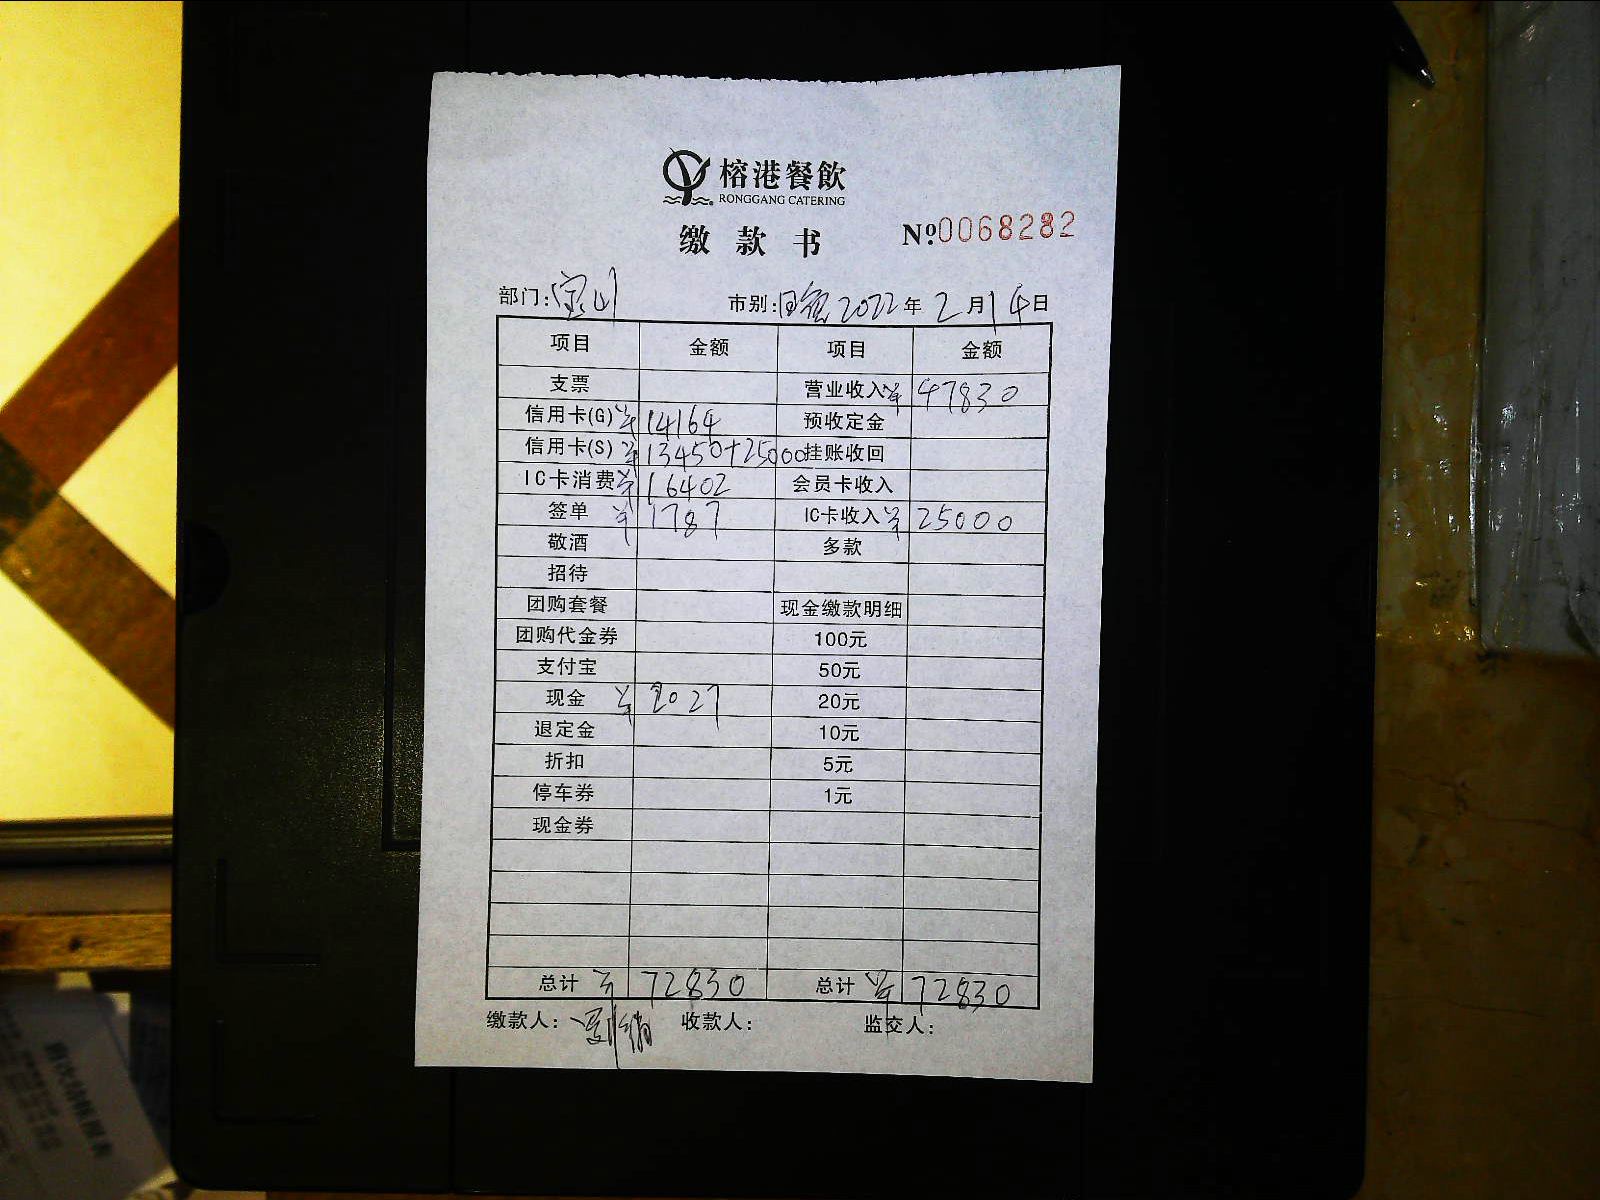 榕港餐飲
RONGGANG CATERING
缴款书 №0068282
部门:宝川 市别: 2022年2月14日
项目 金额 项目 金额
支票 营业收入 ¥47830
信用卡(G) ¥14164 预收定金
信用卡(S) ¥13450+25000 挂账收回
IC卡消费 ¥16402 会员卡收入
签单 ¥1787 IC卡收入 ¥25000
敬酒 多款
招待
团购套餐 现金缴款明细
团购代金券 100元
支付宝 50元
现金 ¥2027 20元
退定金 10元
折扣 5元
停车券 1元
现金券
总计 ¥72830 总计 ¥72830
缴款人: 收款人: 监交人: